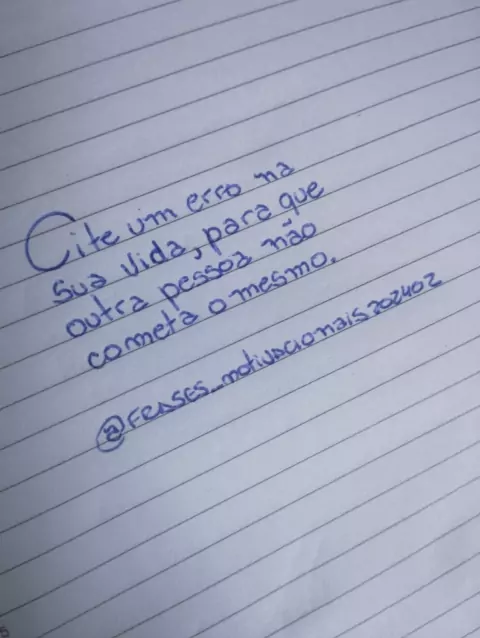 Cite um erro na
sua vida, para que
outra pessoa não
cometa o mesmo.
@FRASES_motivacionais202402